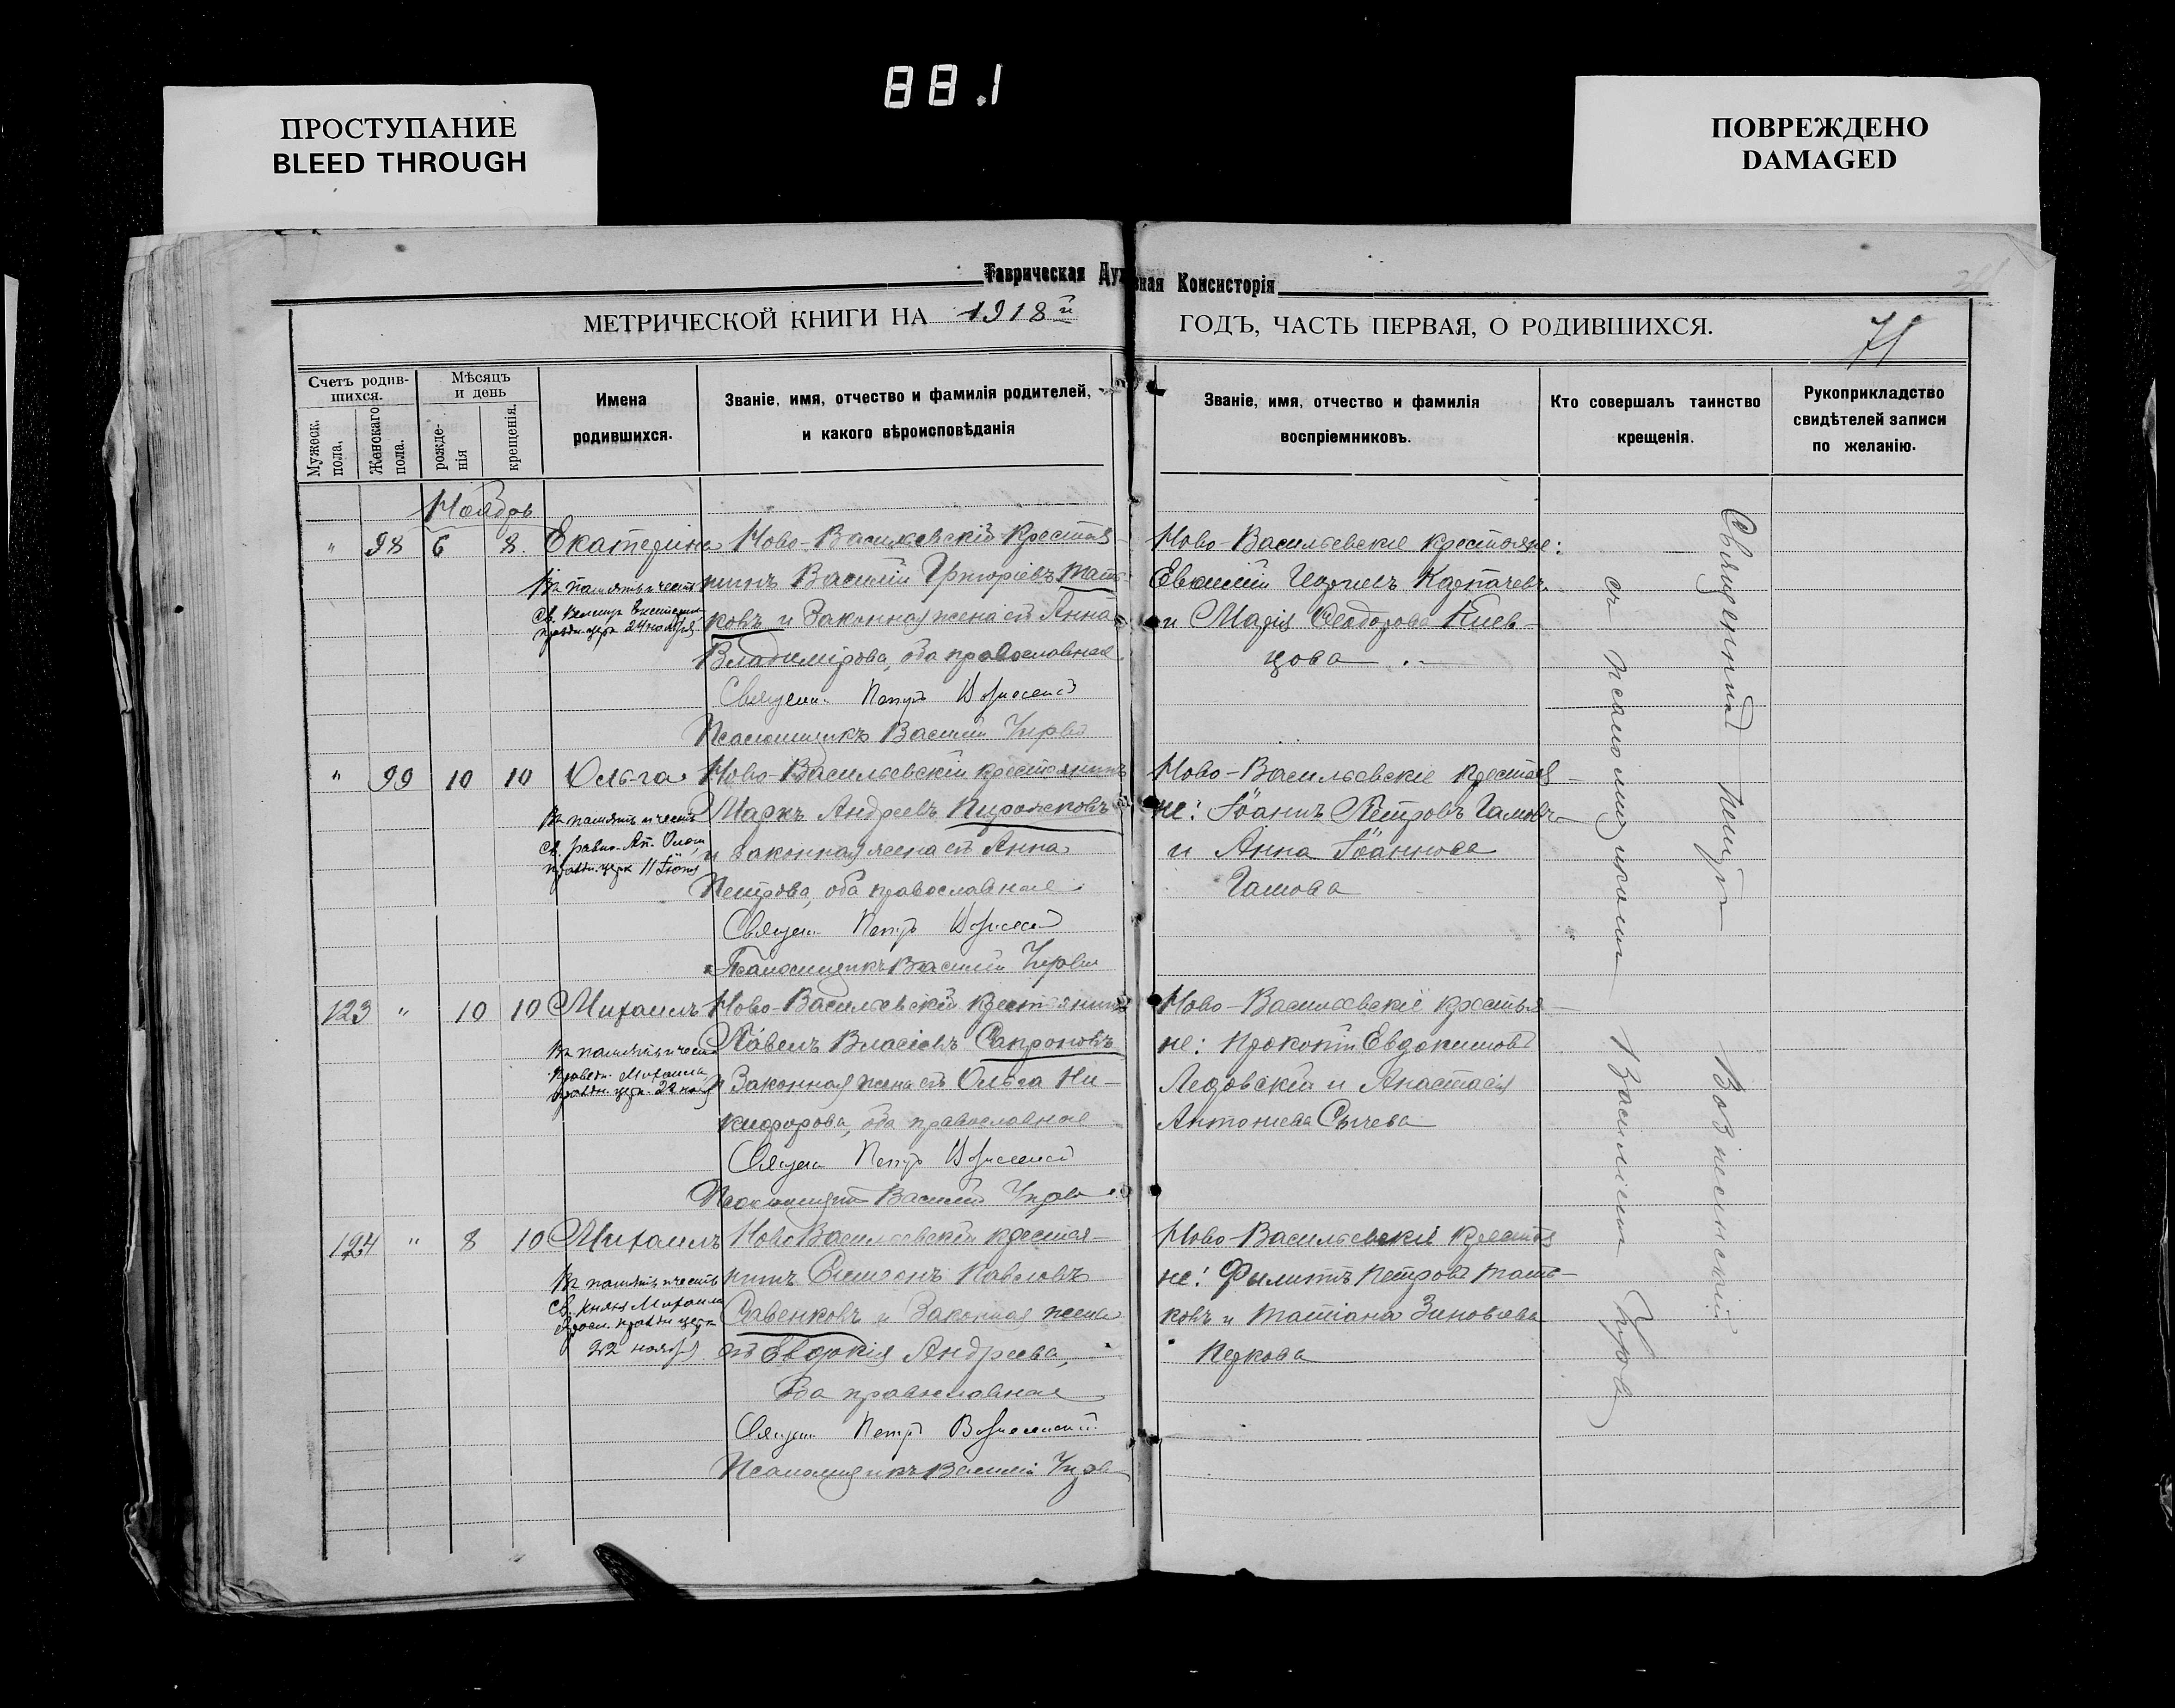 88.1
ПРОСТУПАНИЕ
BLEED THROUGH
ПОВРЕЖДЕНО
DAMAGED
Таврическая Духовная Консисторія
МЕТРИЧЕСКОЙ КНИГИ НА 1918й ГОДЪ, ЧАСТЬ ПЕРВАЯ, О РОДИВШИХСЯ.
71
Счетъ родив-
шихся.
Мужеск. пола.
Женскаго пола.
Мѣсяцъ
и день
рожде-
нія
крещенія.
Имена
родившихся.
Званіе, имя, отчество и фамилія родителей,
и какого вѣроисповѣданія
Званіе, имя, отчество и фамилія
воспріемниковъ.
Кто совершалъ таинство
крещенія.
Рукоприкладство
свидѣтелей записи
по желанію.
Ноябрь
" 98 6 8. Екатерина
Въ память и честь
Св. Велмуч. Екатерин
праздн. церк 24 ноября
Ново-Васильевскій крестья-
нинъ Василій Григоріевъ Мать-
ковъ и законная жена его Анна
Владимірова, оба православные.
Священ. Петръ Вознесенс
Псаломщикъ Василій
Ново-Васильевскіе крестьяне:
Евфимій Карпачевъ
и Марія Ѳеодорова Киев-
цова
" 99 10 10 Ольга
Въ память и честь
св. равно-Ап. Ольги,
праздн. церк 11 Іюля
Ново-Васильевскій крестьянинъ
Маркъ Андреевъ Пирожковъ
и законная жена его Анна
Петрова, оба православные.
Священ Петръ Вознесен
Псаломщикъ Василій
Ново-Васильевскіе крестья-
не: Іоаннъ Петровъ Гамовъ
и Анна Іоаннова
Гамова
123 " 10 10 Михаилъ
Въ память и честь
Праведн. Михаила,
праздн. церк. 22 ноя
Ново-Васильевскій крестьянинъ
Павелъ Власіевъ Сапроновъ
и законная жена его Ольга Ни-
кифорова, оба православные
Священ Петръ Вознесенс
Псаломщикъ Василій
Ново-Васильевскіе крестья-
не: Прокопій Евдокимовъ
Ледовскій и Анастасія
Антоніева Сычева
124 " 8 10 Михаилъ
Въ память и честь
Св. князя Михаила
праздн церк
22 ноября
Ново Васильевскій крестья-
нинъ Симеонъ Павловъ
Савенковъ и законная жена
его Евдокія Андреева,
оба православные
Священ Петръ Вознесенскій
Псаломщикъ Василій
Ново-Васильевскіе крестья
не: Филиппъ Петровъ Мать-
ковъ и Татіана Зиновіева
Перкова
Священникъ Петръ Вознесенскій
съ псаломщикомъ Василіемъ